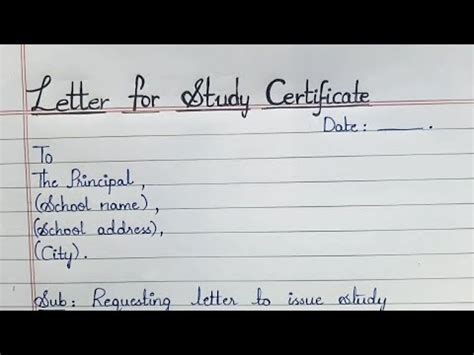 Letter for Study Certificate
Date: ____.
To
The Principal,
(School name),
(School address),
(City).
Sub: Requesting letter to issue study